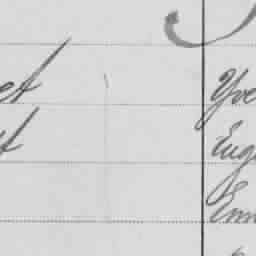 et Yve
t Eug
Em